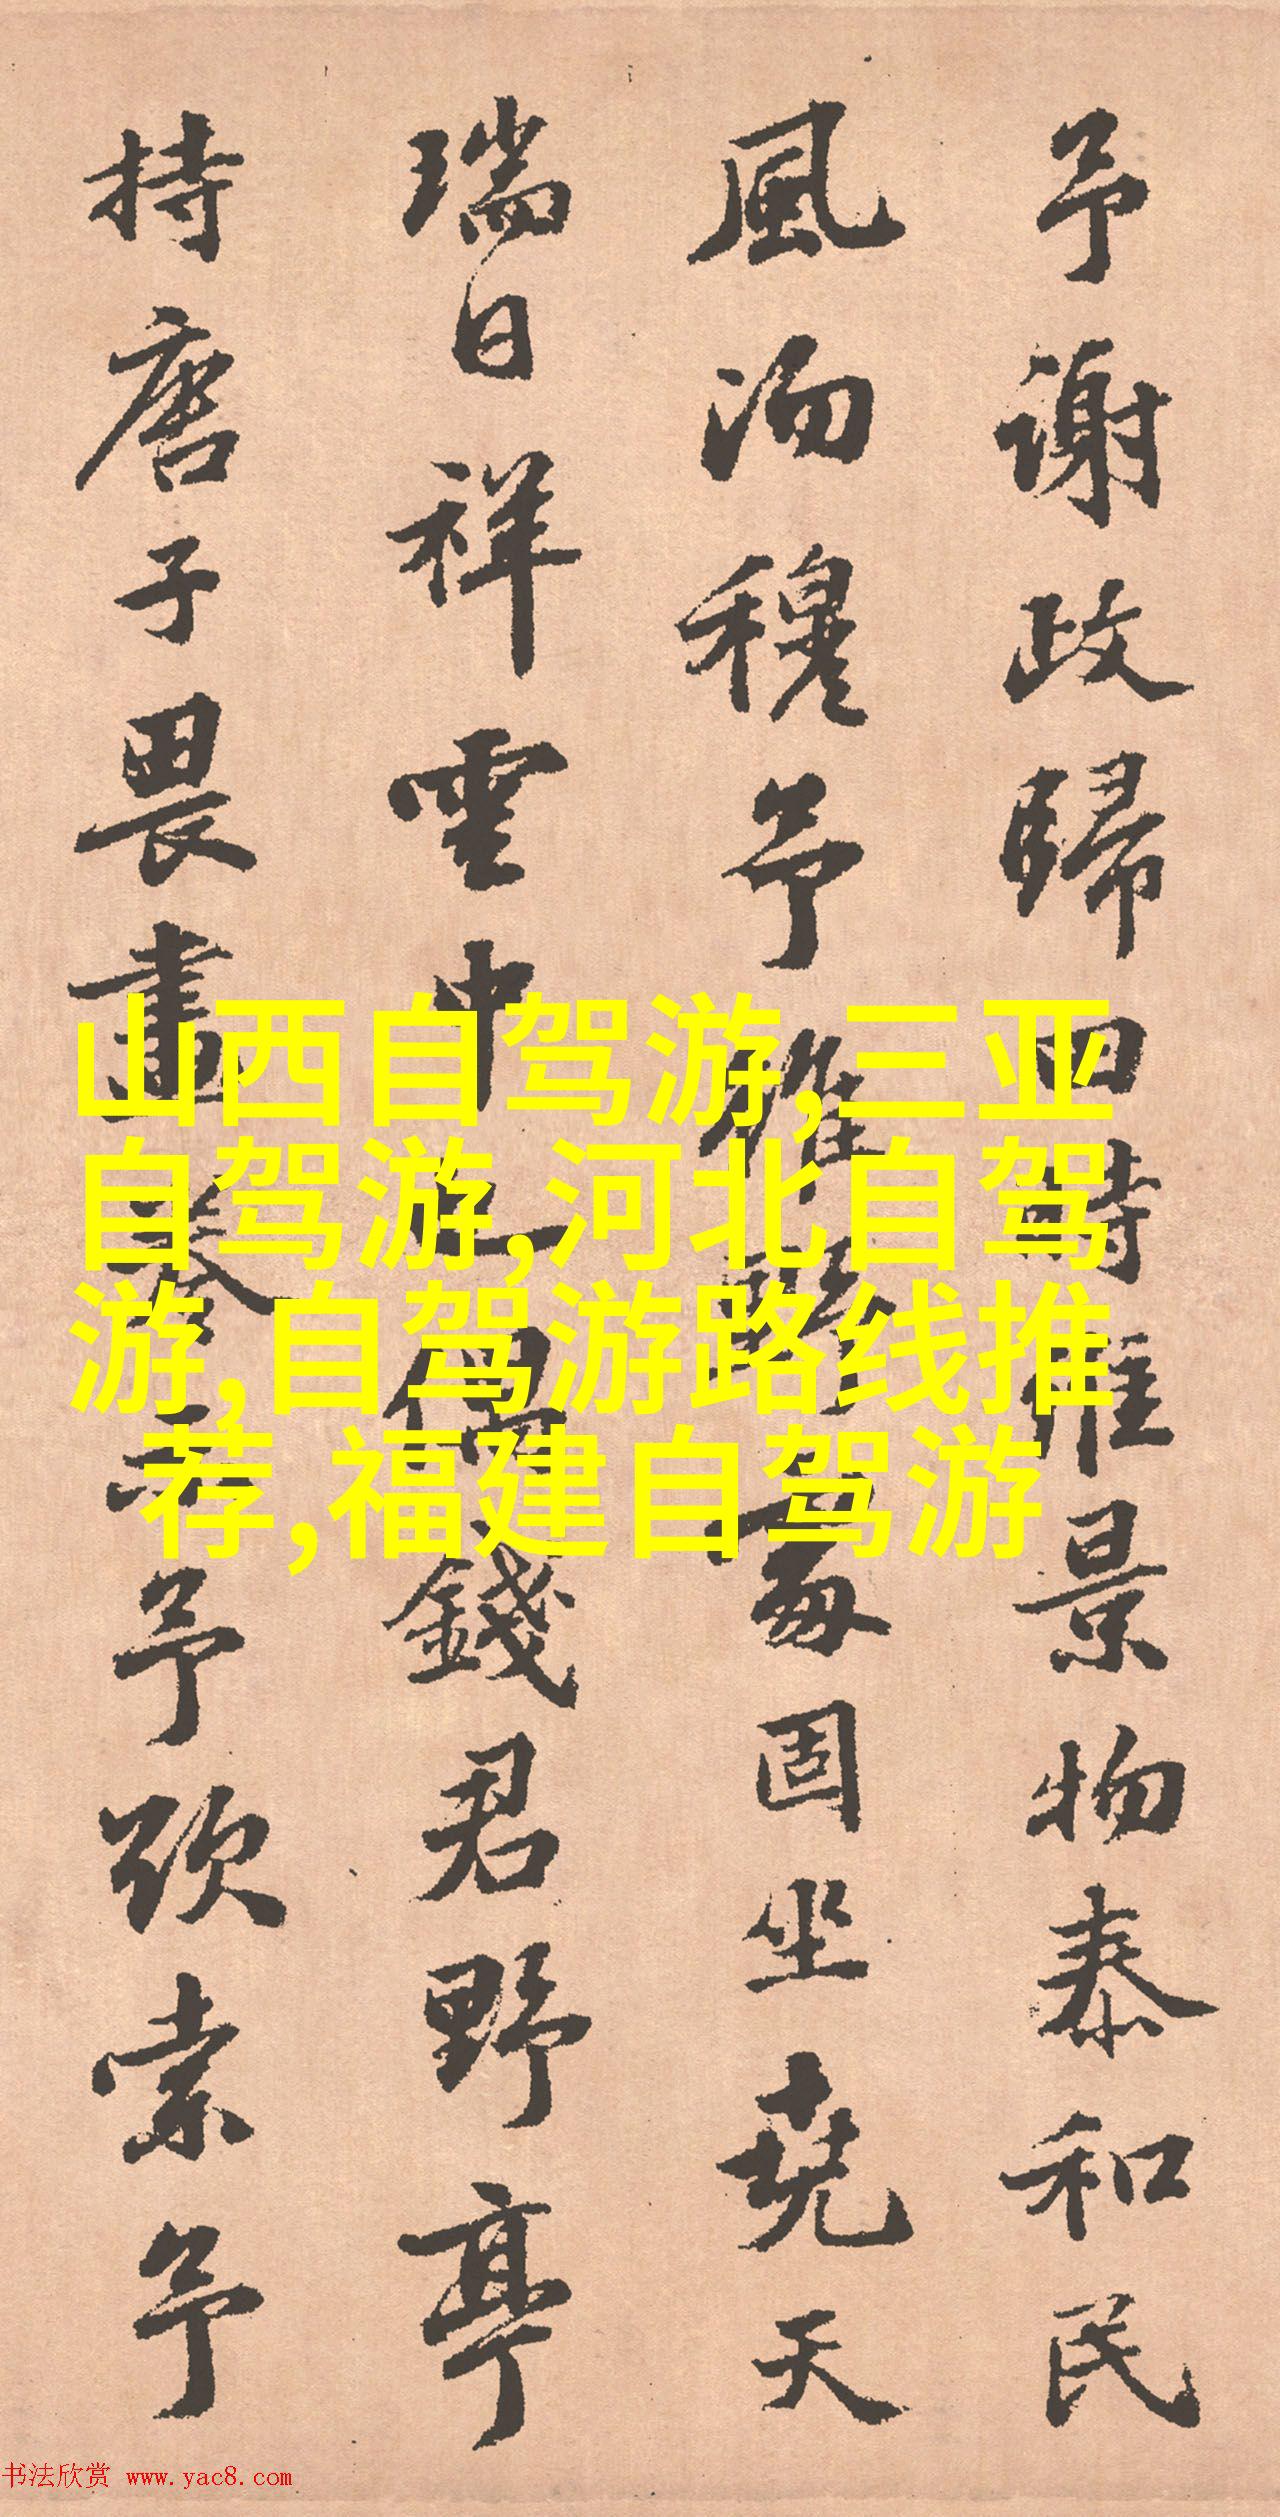 予谢政歸田時惟景物泰和民
風沕穆予
固坐堯天
瑞日祥雲中
錢君野亭
持唐子畏畫卷示予欣索予
山西自驾游,三亚
自驾游,河北自驾
游,自驾游路线推
荐,福建自驾游
书法欣赏 www.yac8.com